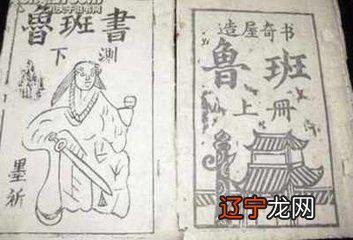 魯班書
下测
墨祈
造屋奇书
鲁班
上册
辽宁龙网